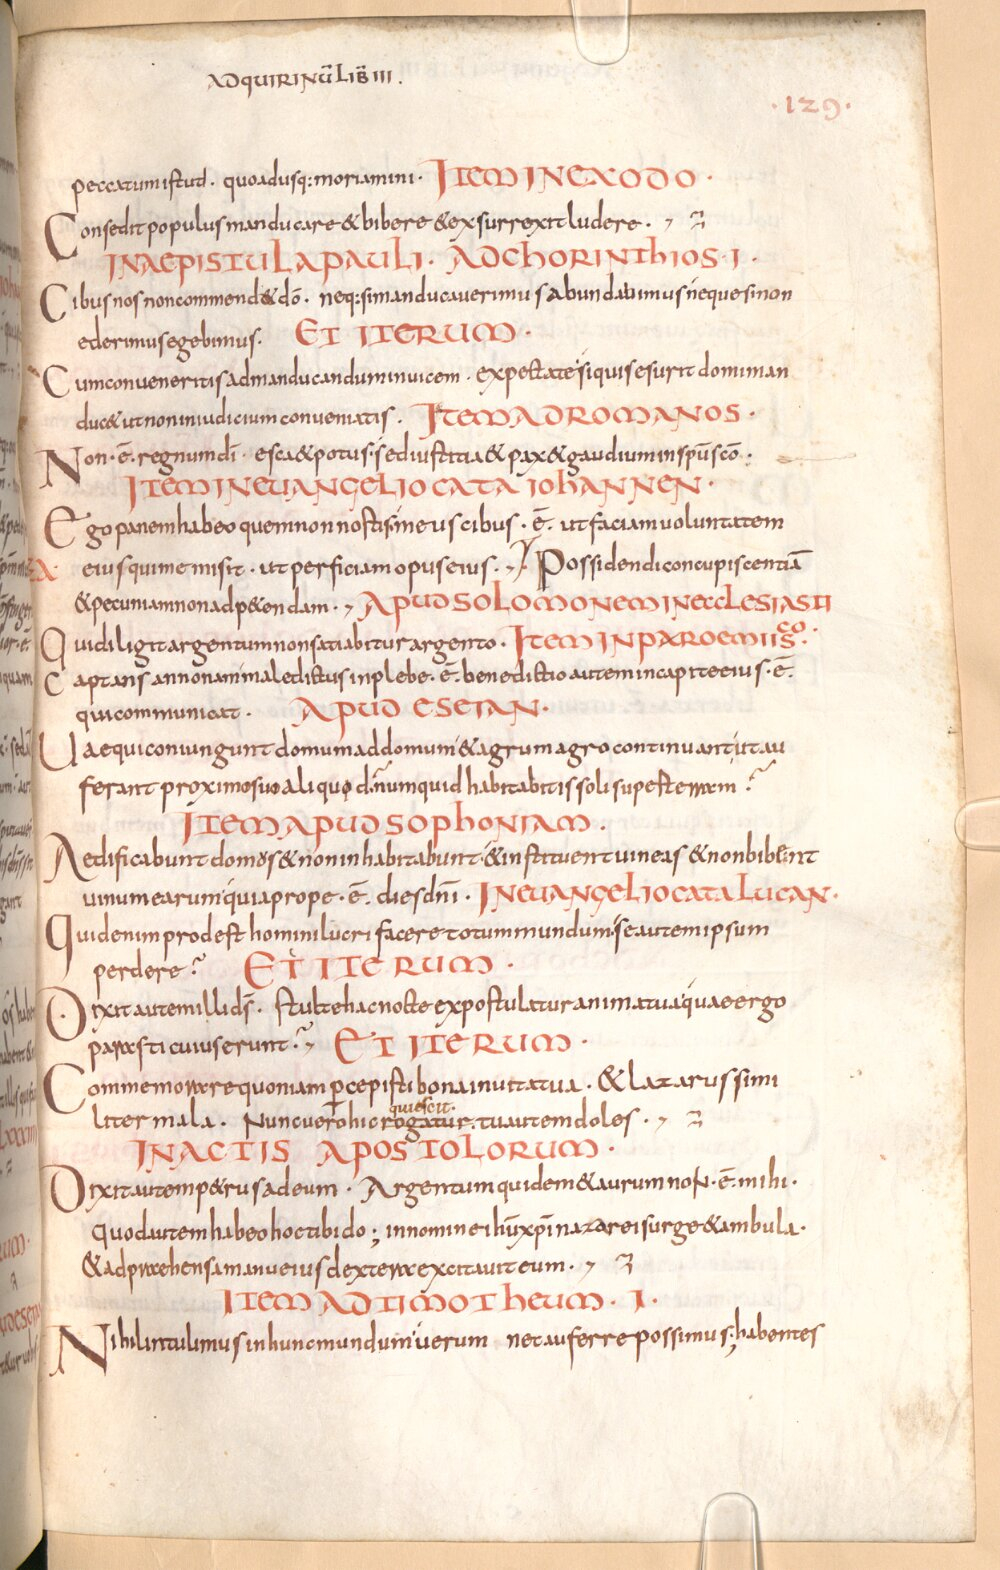 ADQUIRINŪ LIB̄ III.
·129·
peccatum istud. quoadusq; moriamini. ITEM IN EXODO.
Consedit populus manducare & bibere & exsurrexit ludere.
IN AEPISTULA PAULI. AD CHORINTHIOS. I.
Cibus nos non commend& dō. neq; si manducaverimus abundabimus neque si non
ederimus egebimus. ET ITERUM.
Cum conveneritis ad manducandum invicem. expectate si quis esurit domi man
duc& ut non in iudicium conveniatis. ITEM AD ROMANOS.
Non .ē. regnum dī. esca & potus. sed iustitia & pax & gaudium in spū scō.
ITEM IN EUANGELIO CATA IOHANNEN.
Ego panem habeo quem non nostis. meus cibus .ē. ut faciam voluntatem
eius qui me misit. ut perficiam opus eius. Possidendi concupiscentiā
& pecuniam non adp&endam. APUD SOLOMONEM IN ECCLESIASTI
CO.
Qui diligit argentum non satiabitur argento. ITEM IN PAROEMIIS.
Captans annonam maledictus in plebe .ē. benedictio autem in capite eius .ē.
qui communicat. APUD ESEIAN.
Uae qui coniungunt domum ad domum & agrum agro continuant ut au
ferant proximo suo aliquod. numquid habitabitis soli super terram?
ITEM APUD SOPHONIAM.
Aedificabunt domos & non inhabitabunt & instituent vineas & non bibent
vinum earum quia prope .ē. dies dn̄i. IN EUANGELIO CATA LUCAN.
Quid enim prodest homini lucri facere totum mundum. se autem ipsum
perdere? ET ITERUM.
Dixit autem illi dS̄. stulte hac nocte expostulatur anima tua quae ergo
parasti cuius erunt? ET ITERUM.
Commemorare quoniam p̱cepisti bona in vita tua. & lazarus simi
quiescit.
liter mala. Nunc vero hic rogatur. tu autem doles.
IN ACTIS APOSTOLORUM.
Dixit autem p&rus ad eum. Argentum quidem & aurum non .ē. mihi.
Quod autem habeo hoc tibi do; in nomine ihū xpī nazarei surge & ambula.
& adprehensa manu eius dextera excitavit eum.
ITEM AD TIMOTHEUM. I.
Nihil intulimus in hunc mundum verum nec auferre possimus; habentes